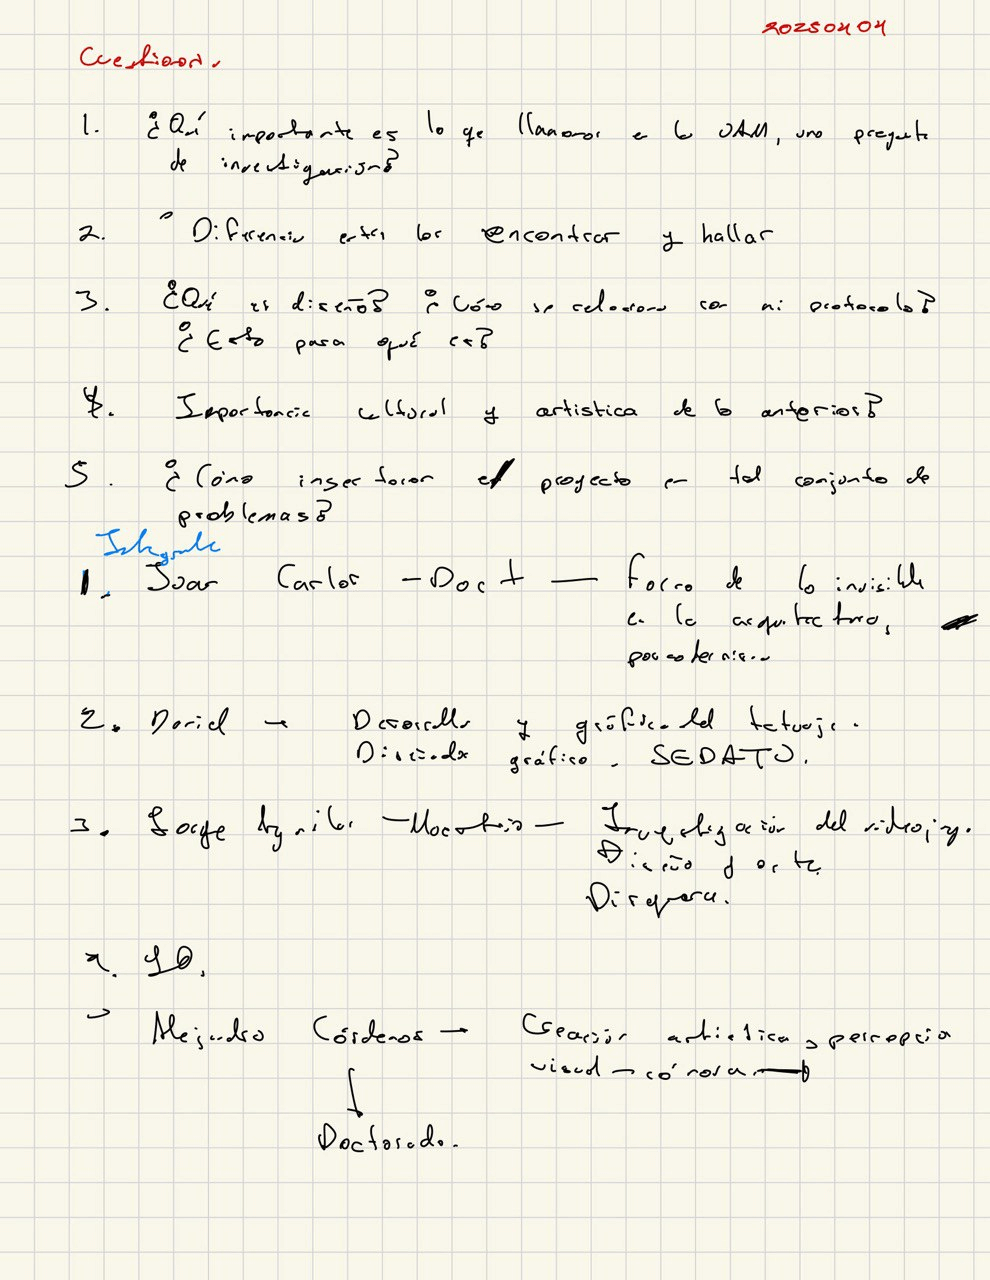 20250404
Cuestiones.
1. ¿Qué importante es lo que llamamos en la UAM, una pregunta
de investigación?
2. Diferencia entre los encontrar y hallar
3. ¿Qué es diseño? ¿Cómo se relaciona con mi protocolo?
¿Esto para qué es?
4. Importancia cultural y artistica de lo anterior?
5. ¿Cómo insertar el proyecto en tal conjunto de
problemas?
1. Juan Carlos — Doct — Forma de lo invisible
en la arquitectura,
2. Daniel → Desarrollo y gráfica del tatuaje.
gráfico. SEDATU.
3. Jorge Aguilar — Maestria — Investigación del videojg.
Diseño y arte
4. Yo.
Alejandro Cárdenas → Creación artistica, percepción
visual → cámara
Doctorado.